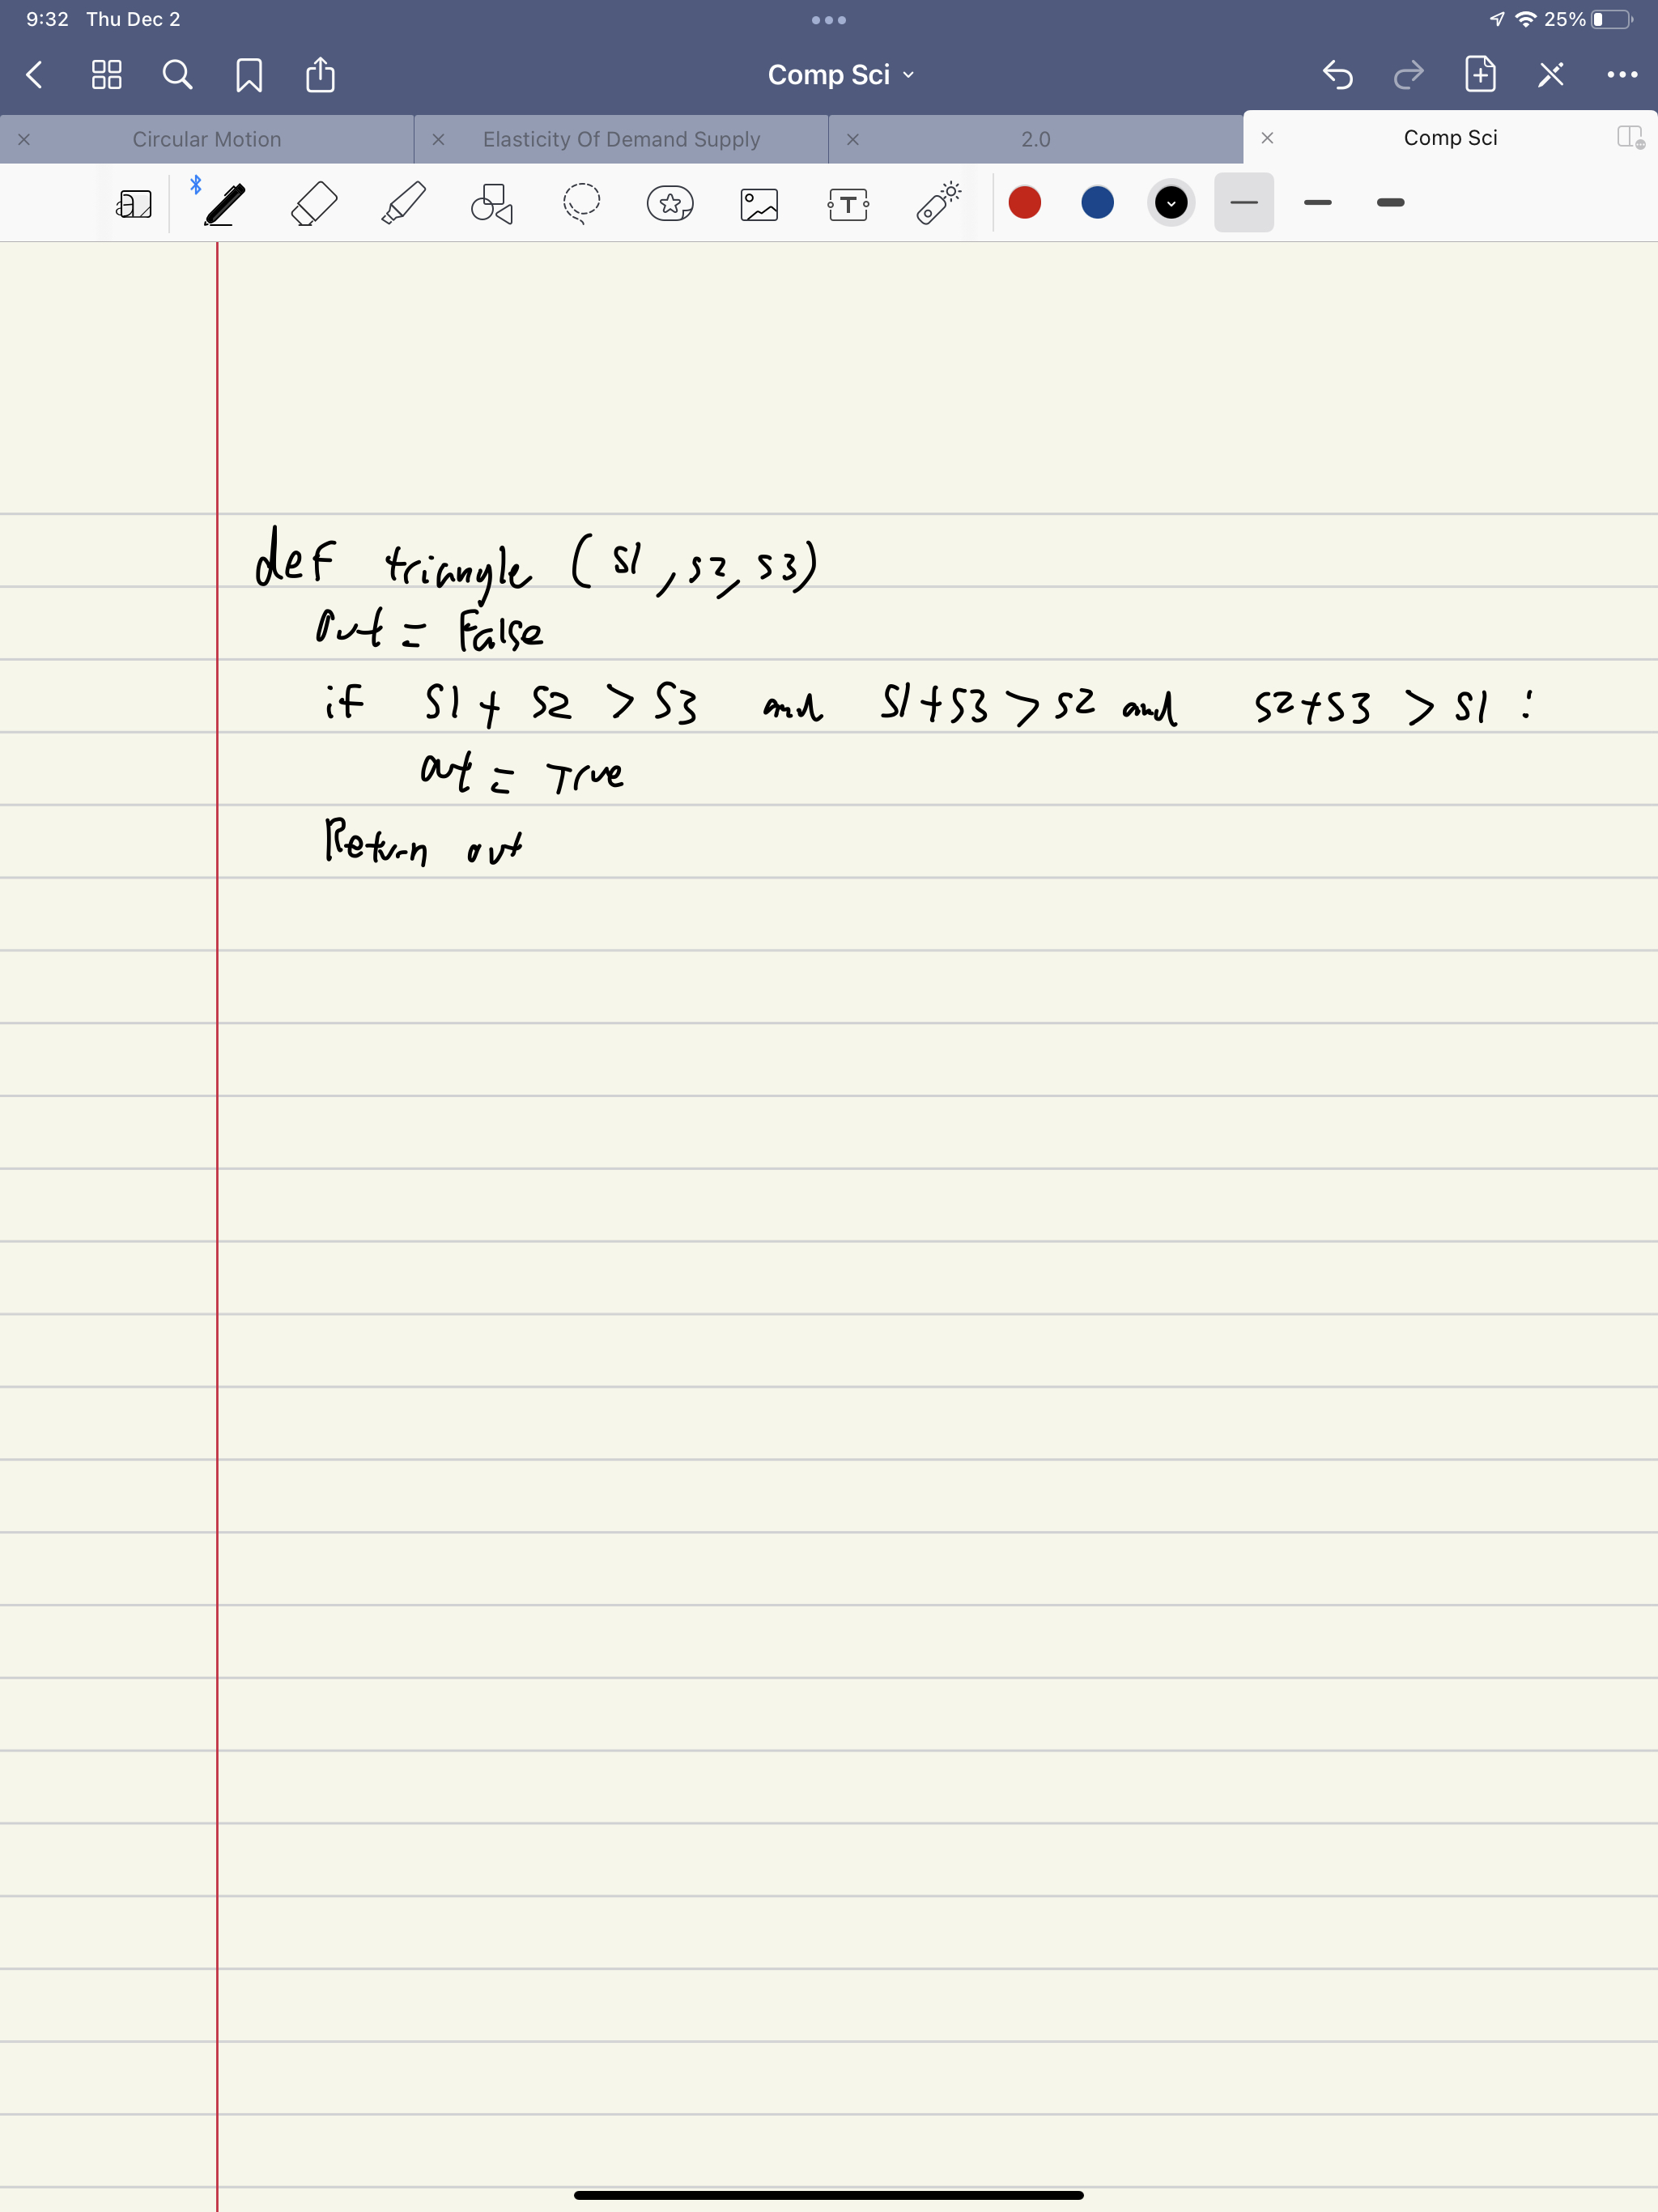 9:32 Thu Dec 2 25%
Comp Sci
Circular Motion Elasticity Of Demand Supply 2.0 Comp Sci
def triangle (s1, s2, s3)
out = False
if s1 + s2 > s3 and s1+s3 > s2 and s2+s3 > s1 :
out = True
Return out